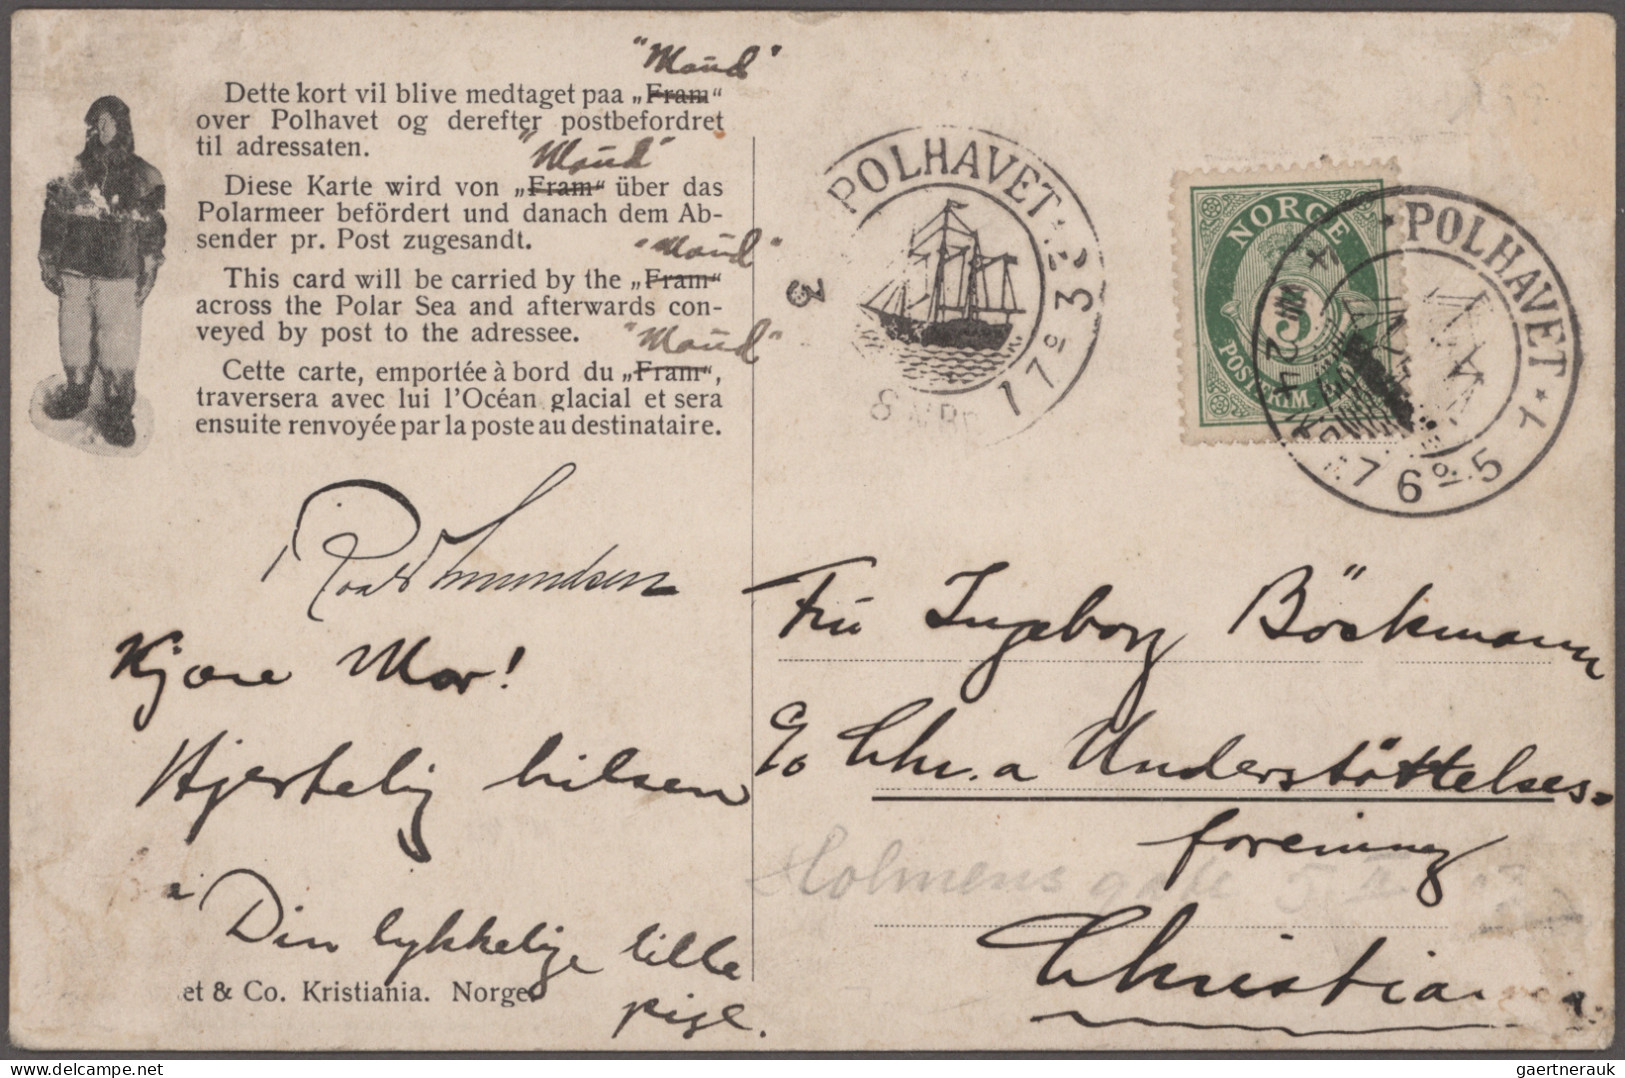 "Maud"
Dette kort vil blive medtaget paa „Fram“
over Polhavet og derefter postbefordret
til adressaten.
"Maud"
Diese Karte wird von „Fram“ über das
Polarmeer befördert und danach dem Ab-
sender pr. Post zugesandt.
"Maud"
This card will be carried by the „Fram“
across the Polar Sea and afterwards con-
veyed by post to the adressee.
"Maud"
Cette carte, emportée à bord du „Fram“,
traversera avec lui l'Océan glacial et sera
ensuite renvoyée par la poste au destinataire.
Roald Amundsen
Kjære Mor!
Hjertelig hilsen
Din lykkelige lille
pige.
et & Co. Kristiania. Norge.
POLHAVET
3
NORGE
5
POSTFRIM.
POLHAVET
VIII 24
76º 5
Fru Ingeborg Böckmann
c/o Chr.a Understöttelses-
forening
Holmens gate 5 II
Christia
gaertnerauk